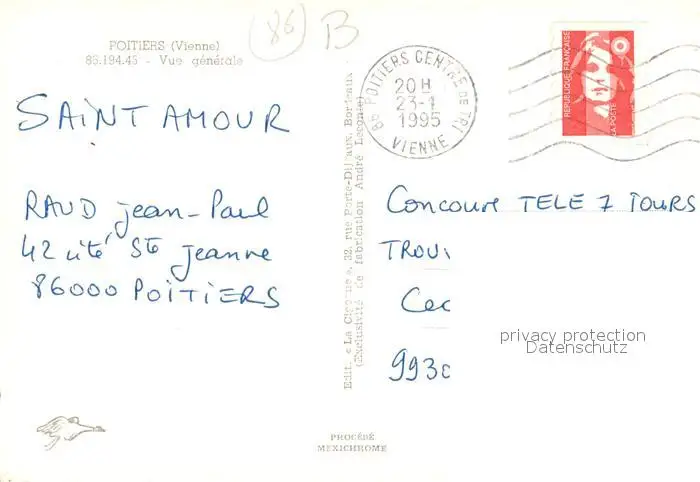 (86) B
POITIERS (Vienne)
86.194.45 - Vue générale
SAINT AMOUR
RAUD jean-Paul
42 cité Ste jeanne
86000 POITIERS
PROCÉDÉ
MEXICHROME
Edit. « La Cigogne », 32, rue Porte-Dijeaux, Bordeaux
(Exclusivité de fabrication André Leconte)
86 POITIERS CENTRE DE TRI
20 H
23-1
1995
VIENNE
REPUBLIQUE FRANÇAISE
LA POSTE
Concours TELE 7 JOURS
TROU
Cec
993
privacy protection
Datenschutz